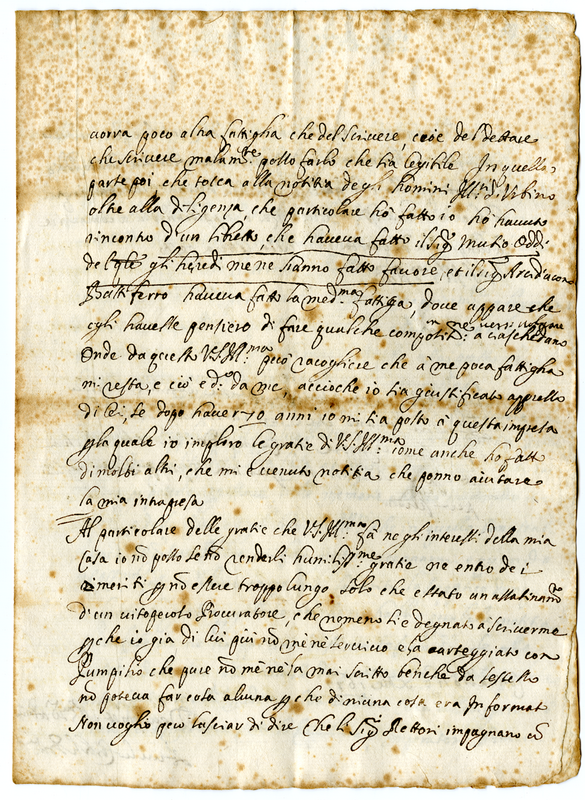 vorra poco altra fattigha che del scrivere, cioè del dettare
che scrivere malam.te posso farlo che sia legibile In quella
parte poi che tocca alla notitia degli homini Ill.ri di Urbino
oltre alla diligenza, che particolare hò fatto io hò havuto
rincontro d'un libretto, che haveva fatto il sig.r Mutio Oddi
del qle gli heredi me ne hanno fatto favore, et il sig.r Arcidiacon
Battiferro haveva fatto la med.ma fattiga, dove appare che
egli havesse pensiero di fare qualche
Onde da questo V.S. Ill.ma può racogliere che à me poca fattigha
mi resta, e ciò è d.o da me, acciochè io sia giustificato appresso
di lei, se dopo haver 70 anni io mi sia posto à questa impresa
p la quale io imploro le gratie di V.S. Ill.ma come anche hò fatt
di molti altri, che mi è venuto notitia che ponno aiutare
la mia intrapresa
Al particolare delle gratie che V.S. Ill.ma fà ne gli interessi della mia
Casa io nõ posso se nõ renderli humiliss.me gratie ne entro de i
meriti p nõ essere troppo lungo. Solo che è stato un assassinam.to
di un Procuratore, che nomeno si è degnato à scriverme
p che io gia di lui qui nõ me nè servivo e sà carteggiato con
Pumpilio che pure nõ me nè sà mai scritto benche da se stesso
nõ poteva far cosa alcuna p che di niuna cosa era Informat
Non voglio però lasciar di dire che li Sig.ri Rettori impagnano cõ